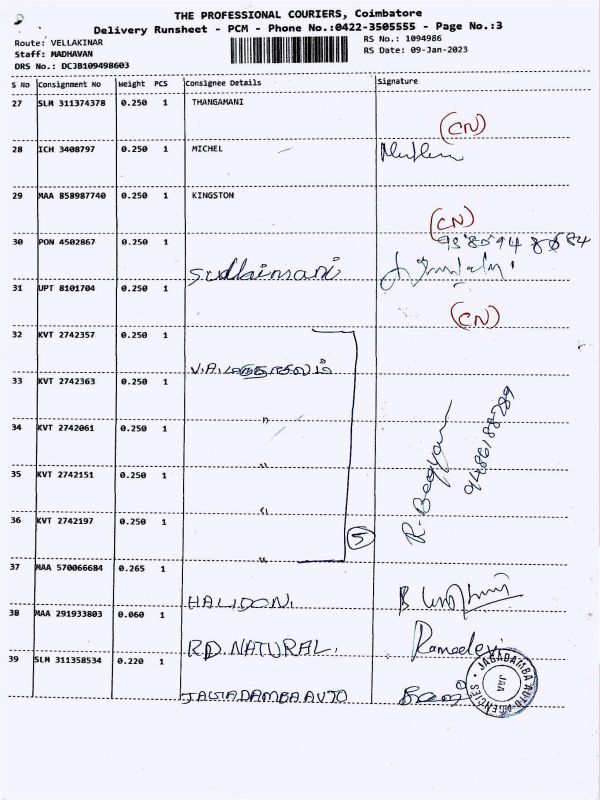 THE PROFESSIONAL COURIERS, Coimbatore
Delivery Runsheet - PCM - Phone No.:0422-3505555 - Page No.:3
Route: VELLAKINAR
RS No.: 1094986
Staff: MADHAVAN
RS Date: 09-Jan-2023
DRS No.: DCJB109498603
S No Consignment No Weight PCS Consignee Details Signature
27 SLM 311374378 0.250 1 THANGAMANI
(CN)
28 ICH 3408797 0.250 1 MICHEL
29 MAA 858987740 0.250 1 KINGSTON
(CN)
30 PON 4502867 0.250 1
31 UPT 8101704 0.250 1
(CN)
32 KVT 2742357 0.250 1
V.A.
33 KVT 2742363 0.250 1
"
34 KVT 2742061 0.250 1
"
35 KVT 2742151 0.250 1
"
36 KVT 2742197 0.250 1
"
5
9486188289
37 MAA 570066684 0.265 1
HALIDON.
38 MAA 291933803 0.060 1
RD. NATURAL.
Ramadevi
39 SLM 311358534 0.220 1
JAGADAMBA AUTO
JAGADAMBA AUTO AGENCIES
JAA